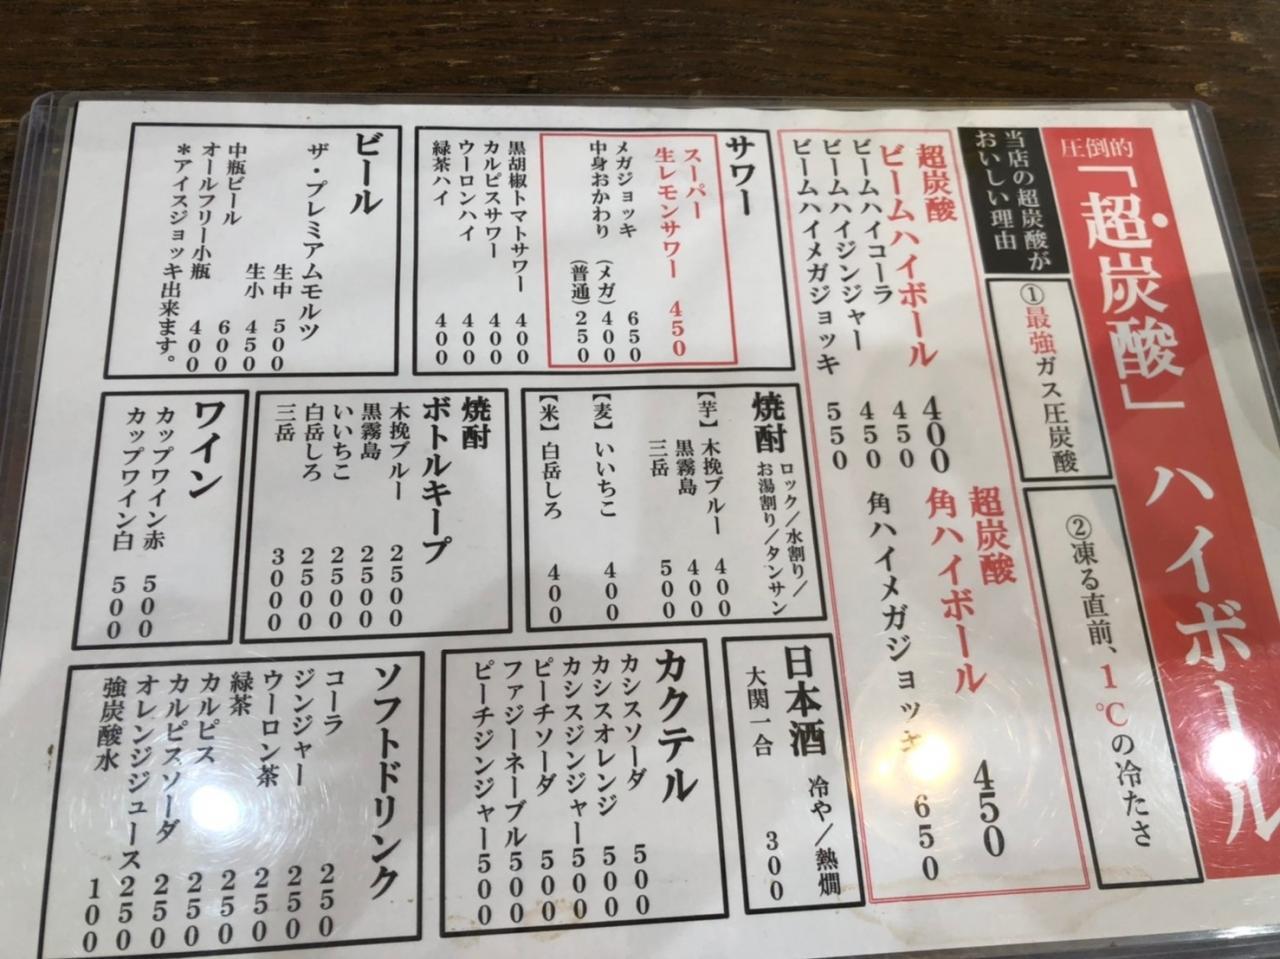 圧倒的「超炭酸」ハイボール
当店の超炭酸が
おいしい理由
①最強ガス圧炭酸
②凍る直前、1℃の冷たさ
超炭酸
ビームハイボール 400
ビームハイコーラ 450
ビームハイジンジャー 450
ビームハイメガジョッキ 550
超炭酸
角ハイボール 450
角ハイメガジョッキ 650
サワー
スーパー
生レモンサワー 450
メガジョッキ 650
中身おかわり (メガ) 400
(普通) 250
黒胡椒トマトサワー 400
カルピスサワー 400
ウーロンハイ 400
緑茶ハイ 400
ビール
ザ・プレミアムモルツ
生中 500
生小 450
中瓶ビール 600
オールフリー小瓶 400
*アイスジョッキ出来ます。
焼酎 ロック/水割り/
お湯割り/タンサン
【芋】木挽ブルー 400
黒霧島 400
三岳 500
【麦】いいちこ 400
【米】白岳しろ 400
焼酎
ボトルキープ
木挽ブルー 2500
黒霧島 2500
いいちこ 2500
白岳しろ 2500
三岳 3000
ワイン
カップワイン赤 500
カップワイン白 500
日本酒 冷や/熱燗
大関一合 300
カクテル
カシスソーダ 500
カシスオレンジ 500
カシスジンジャー 500
ピーチソーダ 500
ファジーネーブル 500
ピーチジンジャー 500
ソフトドリンク
コーラ 250
ジンジャー 250
ウーロン茶 250
緑茶 250
カルピス 250
カルピスソーダ 250
オレンジジュース 250
強炭酸水 100